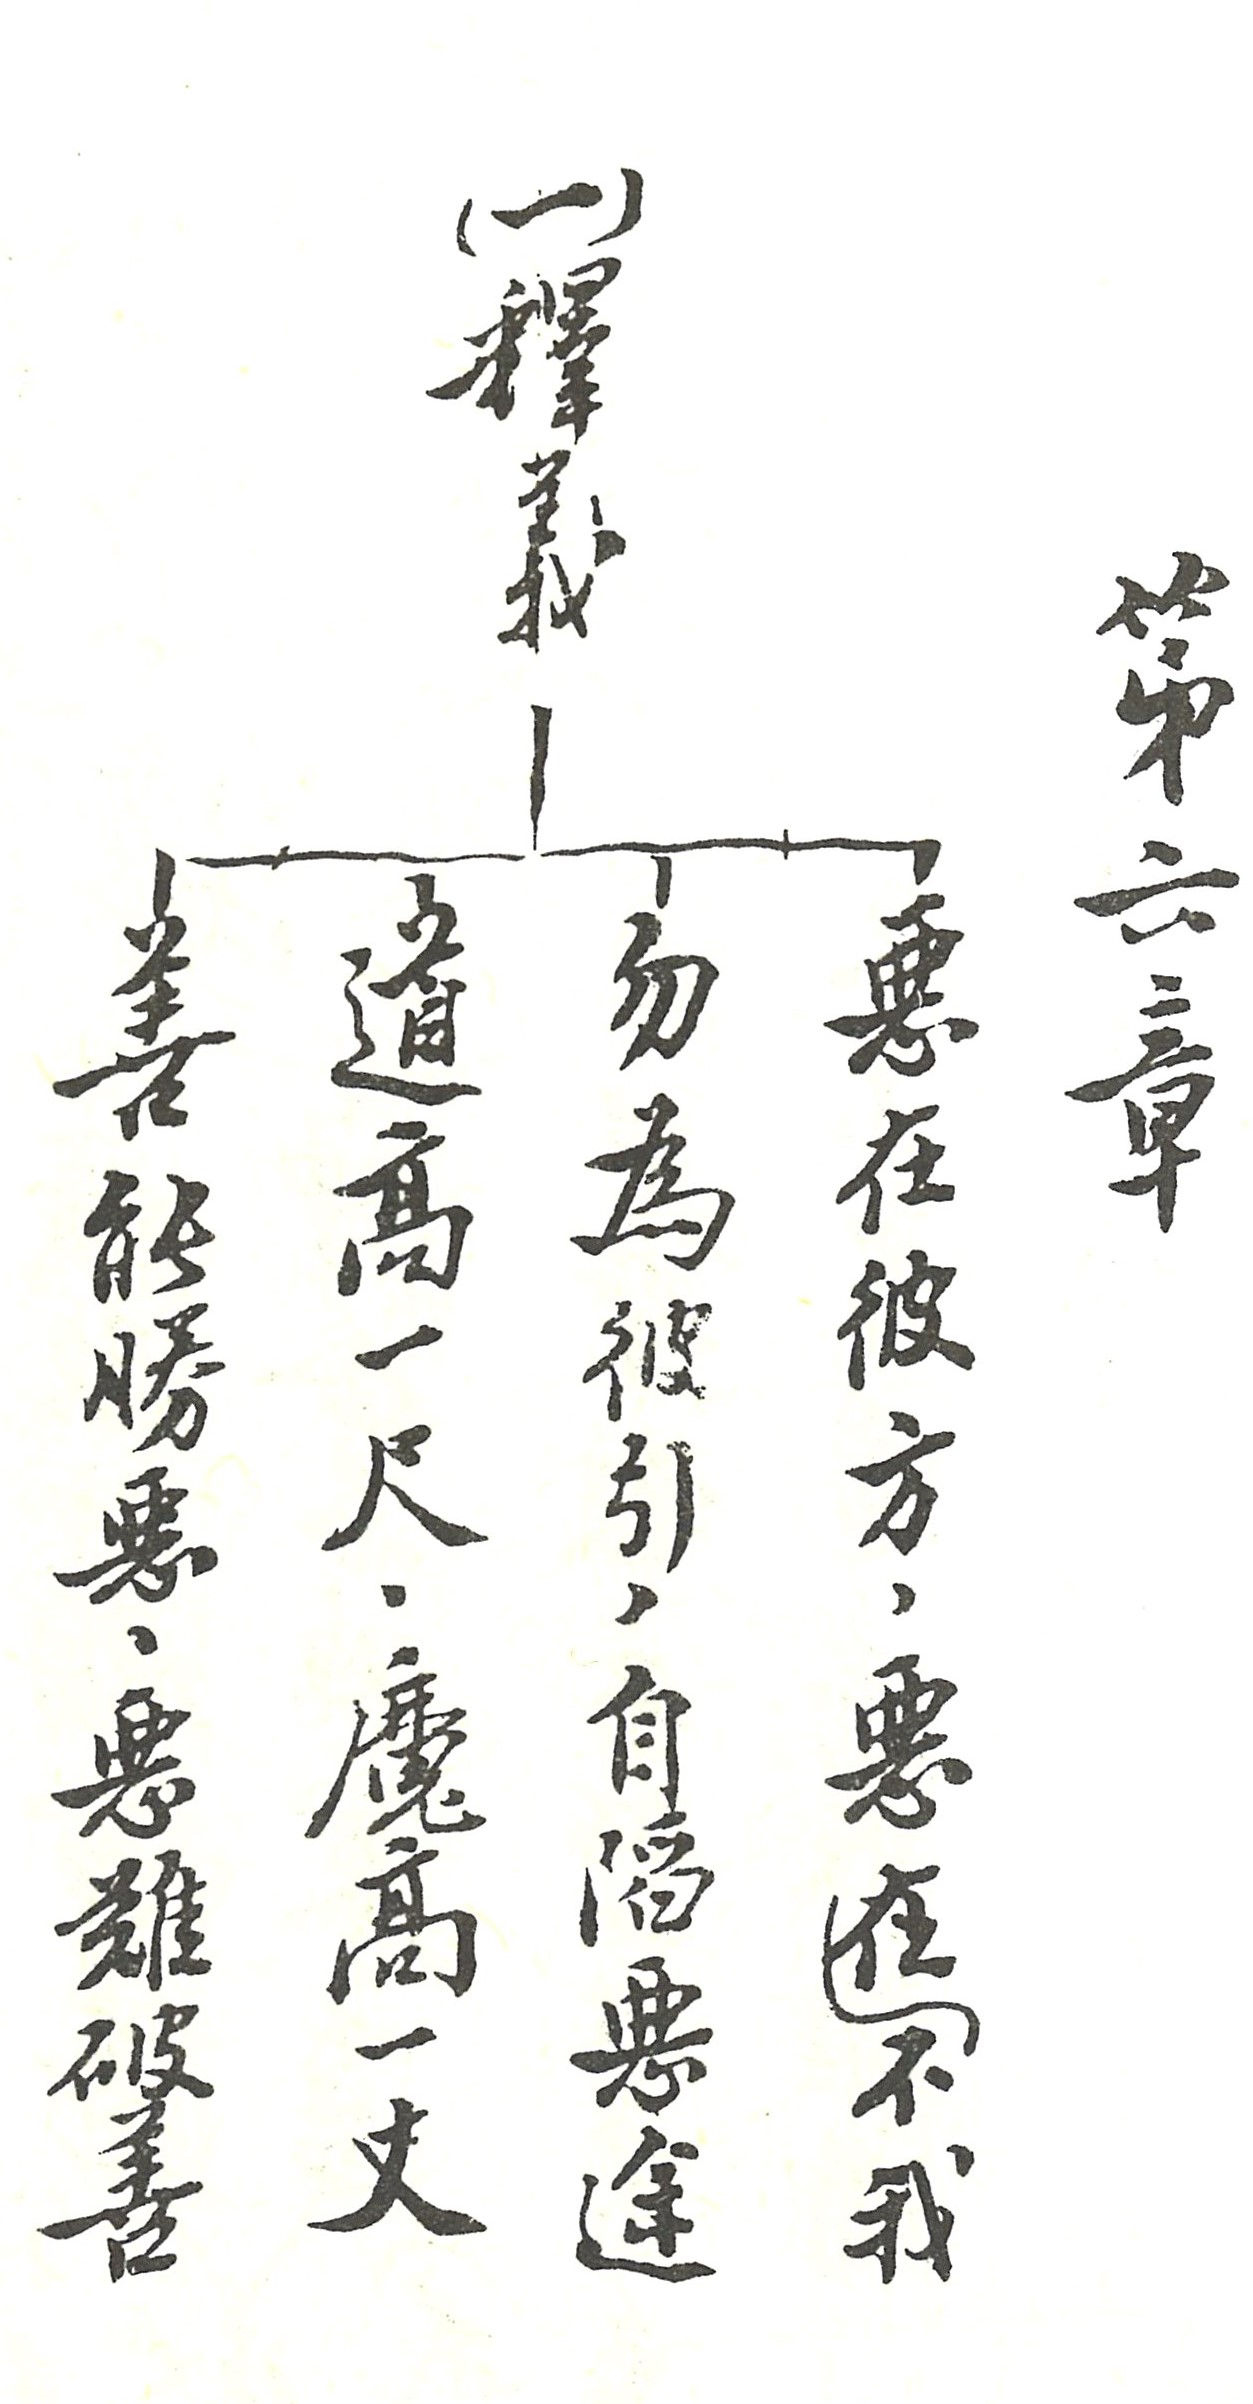 第六章
(一)釋義
惡在彼方、惡在不我
勿為彼引、自陷惡途
道高一尺、魔高一丈
善能勝惡、惡難破善